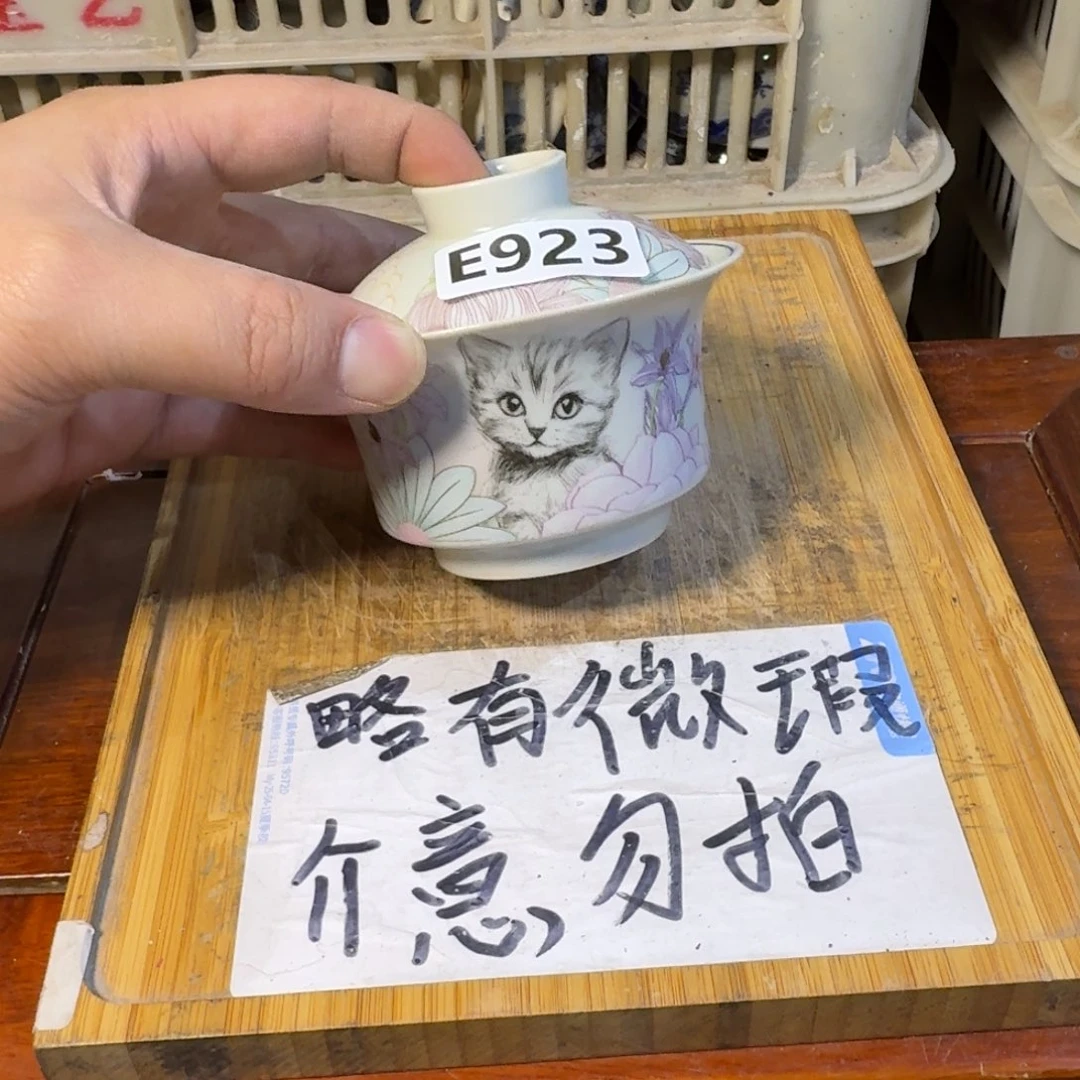 E923
略有微瑕
介意勿拍